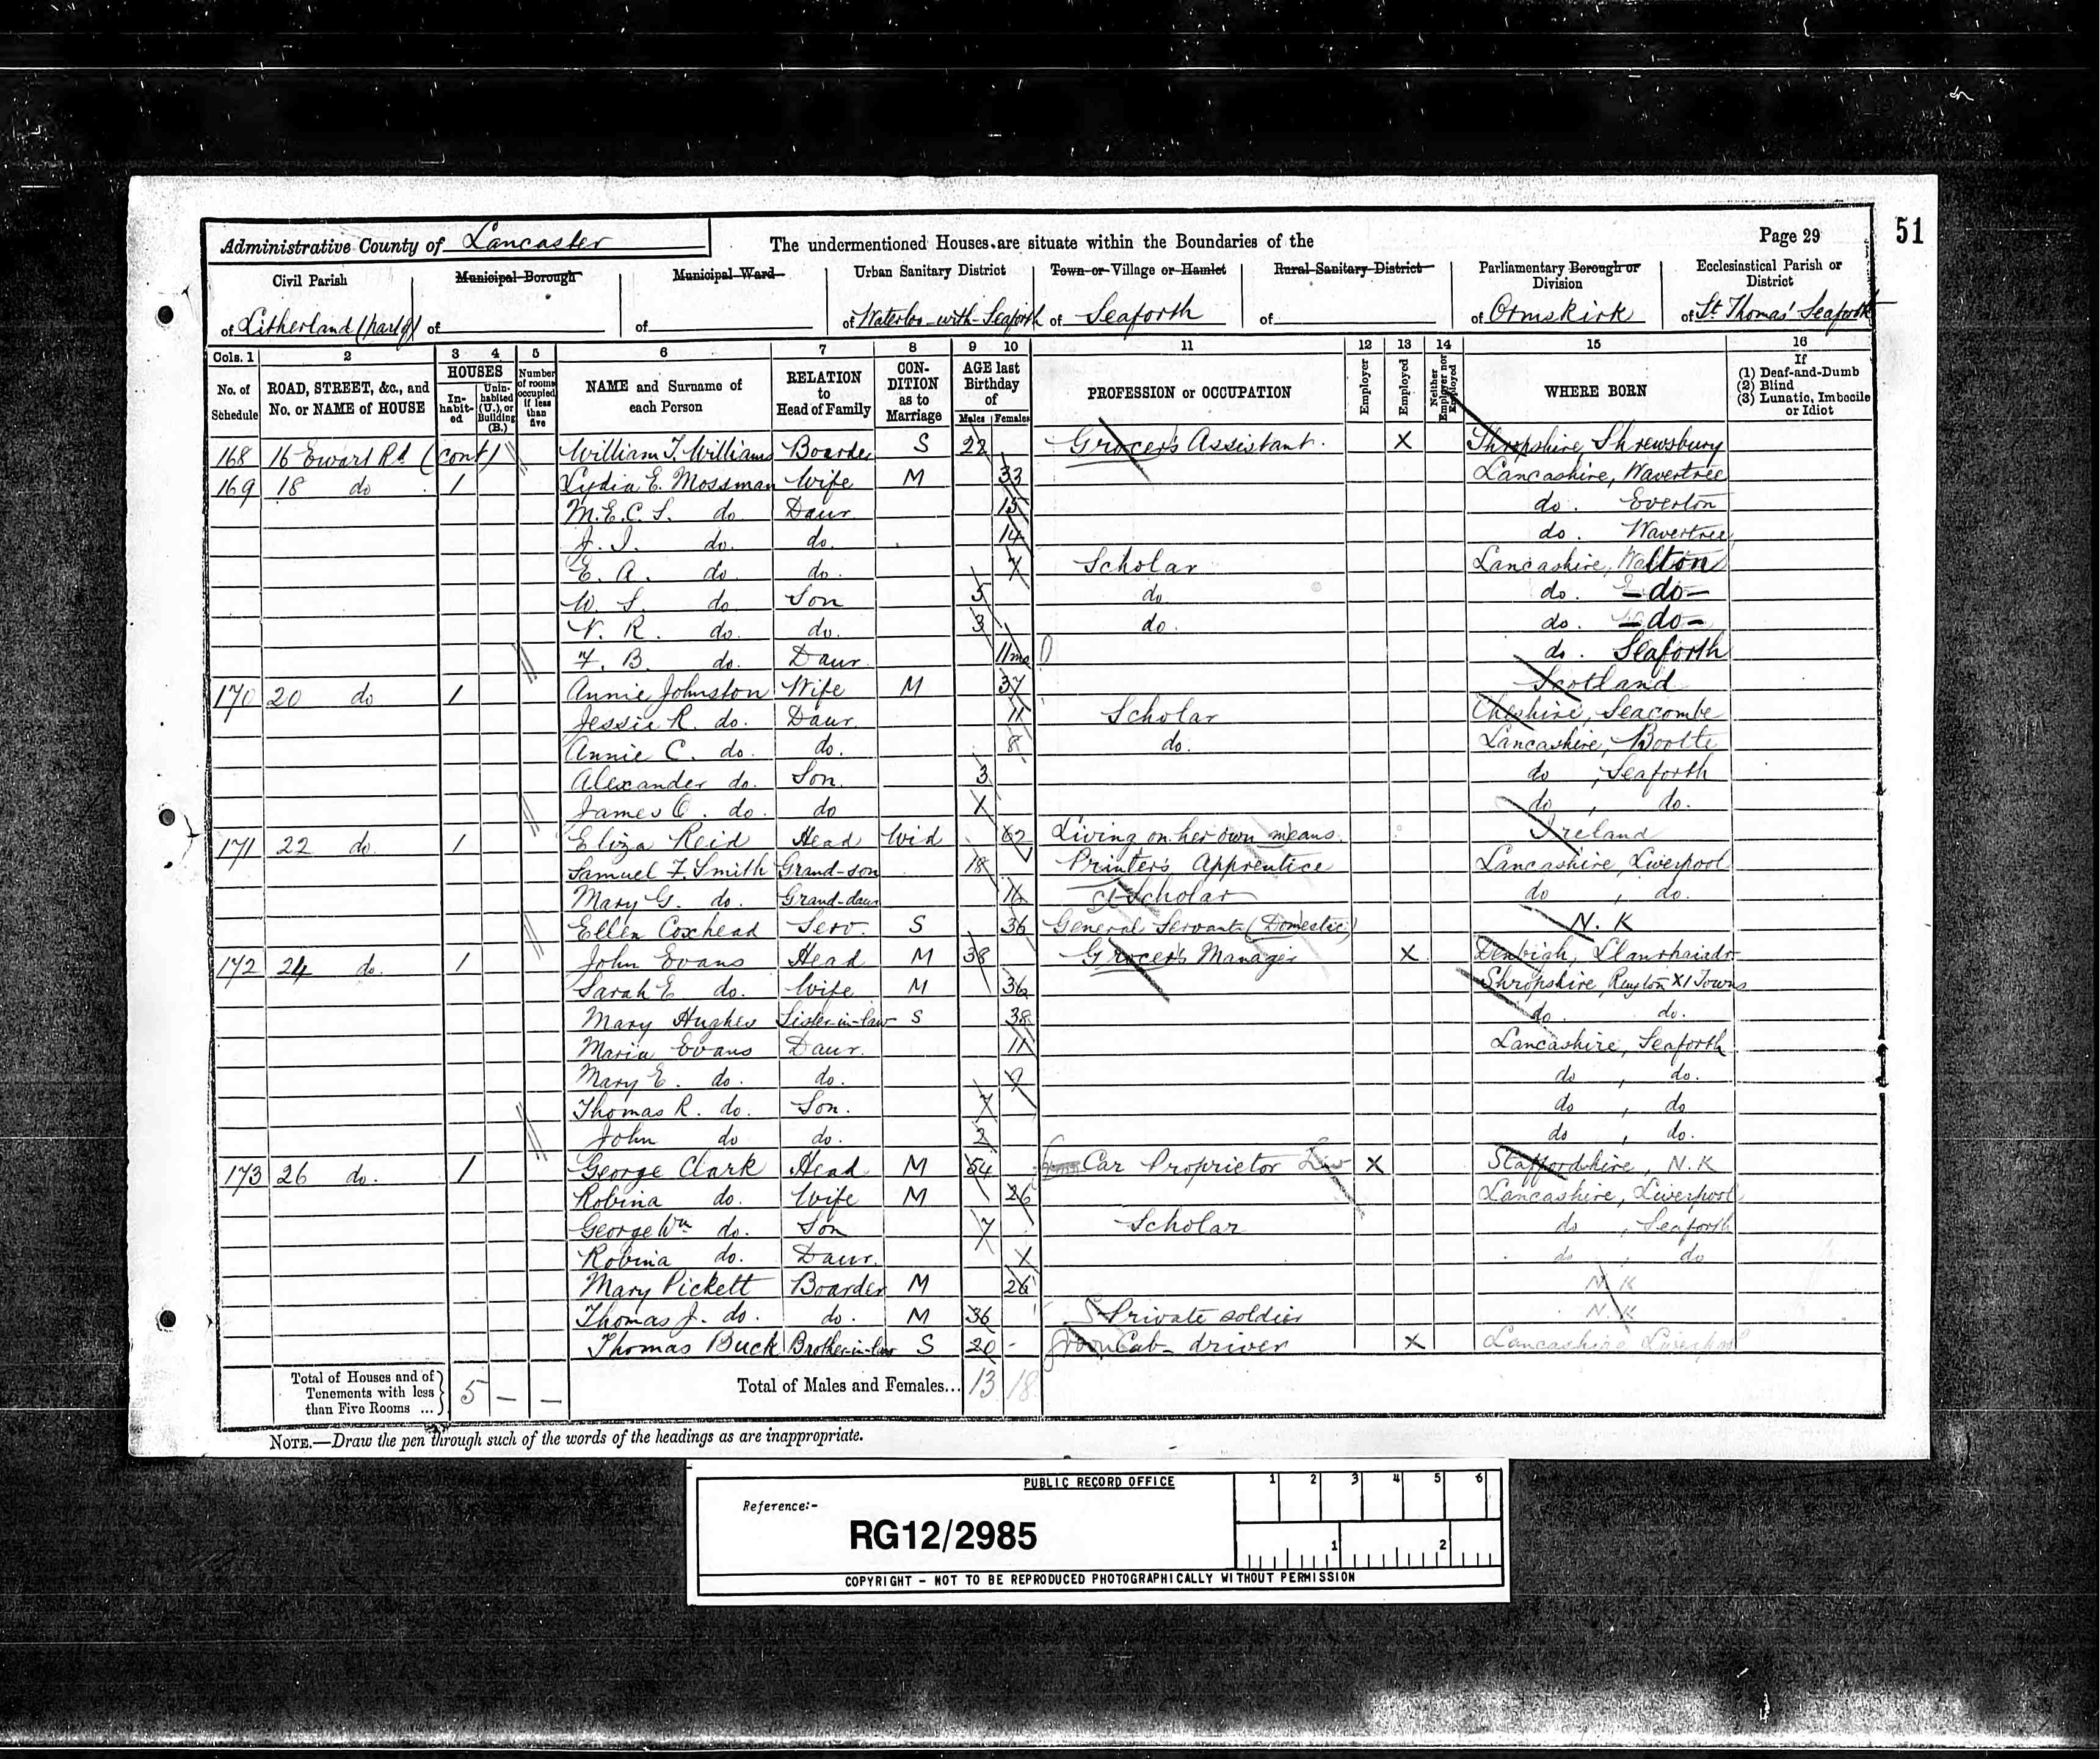 51
Administrative County of Lancaster The undermentioned Houses are situate within the Boundaries of the Page 29
Civil Parish Municipal Borough Municipal Ward Urban Sanitary District Town or Village or Hamlet Rural Sanitary District Parliamentary Borough or Division Ecclesiastical Parish or District
of Litherland (part of) of of of Waterloo-with-Seaforth of Seaforth of of Ormskirk of St Thomas' Seaforth
Cols. 1 2 3 4 5 6 7 8 9 10 11 12 13 14 15 16
No. of Schedule ROAD, STREET, &c., and No. or NAME of HOUSE HOUSES In-habit-ed Unin-habited (U.), or Building (B.) Number of rooms occupied if less than five NAME and Surname of each Person RELATION to Head of Family CON-DITION as to Marriage AGE last Birthday of Males Females PROFESSION or OCCUPATION Employer Employed Neither Employer nor Employed WHERE BORN If (1) Deaf-and-Dumb (2) Blind (3) Lunatic, Imbecile or Idiot
168 16 Ewart Rd (cont) William T. Williams Boarder S 22 Grocer's Assistant. X Shropshire, Shrewsbury
169 18 do 1 Lydia E. Mossman Wife M 33 Lancashire, Wavertree
M.E.C.S. do Daur 15 do. Everton
J. I. do. do. 14 do. Wavertree
E. A. do do. 7 Scholar Lancashire, Walton
W. S. do Son 5 do do. -do-
N. R. do. do. 3 do. do. -do-
F. B. do. Daur 11mo do. Seaforth
170 20 do 1 Annie Johnston Wife M 37 Scotland
Jessie R. do. Daur. 11 Scholar Cheshire, Seacombe
Annie C. do. do. 8 do. Lancashire, Bootle
Alexander do. Son. 3 do , Seaforth
James C. do. do 1 do , do.
171 22 do. 1 Eliza Reid Head Wid 62 Living on her own means. Ireland
Samuel F. Smith Grand-son 18 Printer's Apprentice Lancashire, Liverpool
Mary G. do. Grand-daur 16 Scholar do , do.
Ellen Coxhead Serv. S 36 General Servant (Domestic) N. K
172 24 do. 1 John Evans Head M 38 Grocer's Manager X Denbigh, Llanrhaiadr
Sarah E do. Wife M 36 Shropshire, Ruyton XI Towns
Mary Hughes Sister-in-law S 38 do. do.
Maria Evans Daur. 11 Lancashire, Seaforth
Mary E. do. do. 9 do , do.
Thomas R. do. Son. 7 do , do
John do do. 2 do , do.
173 26 do. 1 George Clark Head M 54 Car Proprietor Liv X Staffordshire, N.K
Robina do. Wife M 26 Lancashire, Liverpool
George Wm do. Son 7 Scholar do , Seaforth
Robina do. Daur. do , do
Mary Pickett Boarder M 26 N. K
Thomas J. do. do. M 36 Private soldier N. K
Thomas Buck Brother-in-law S 20 - Groom Cab-driver X Lancashire Liverpool
Total of Houses and of Tenements with less than Five Rooms ... 5 — — Total of Males and Females... 13 18
NOTE.—Draw the pen through such of the words of the headings as are inappropriate.
PUBLIC RECORD OFFICE 1 2 3 4 5 6
Reference:-
RG12/2985
1 2
COPYRIGHT - NOT TO BE REPRODUCED PHOTOGRAPHICALLY WITHOUT PERMISSION